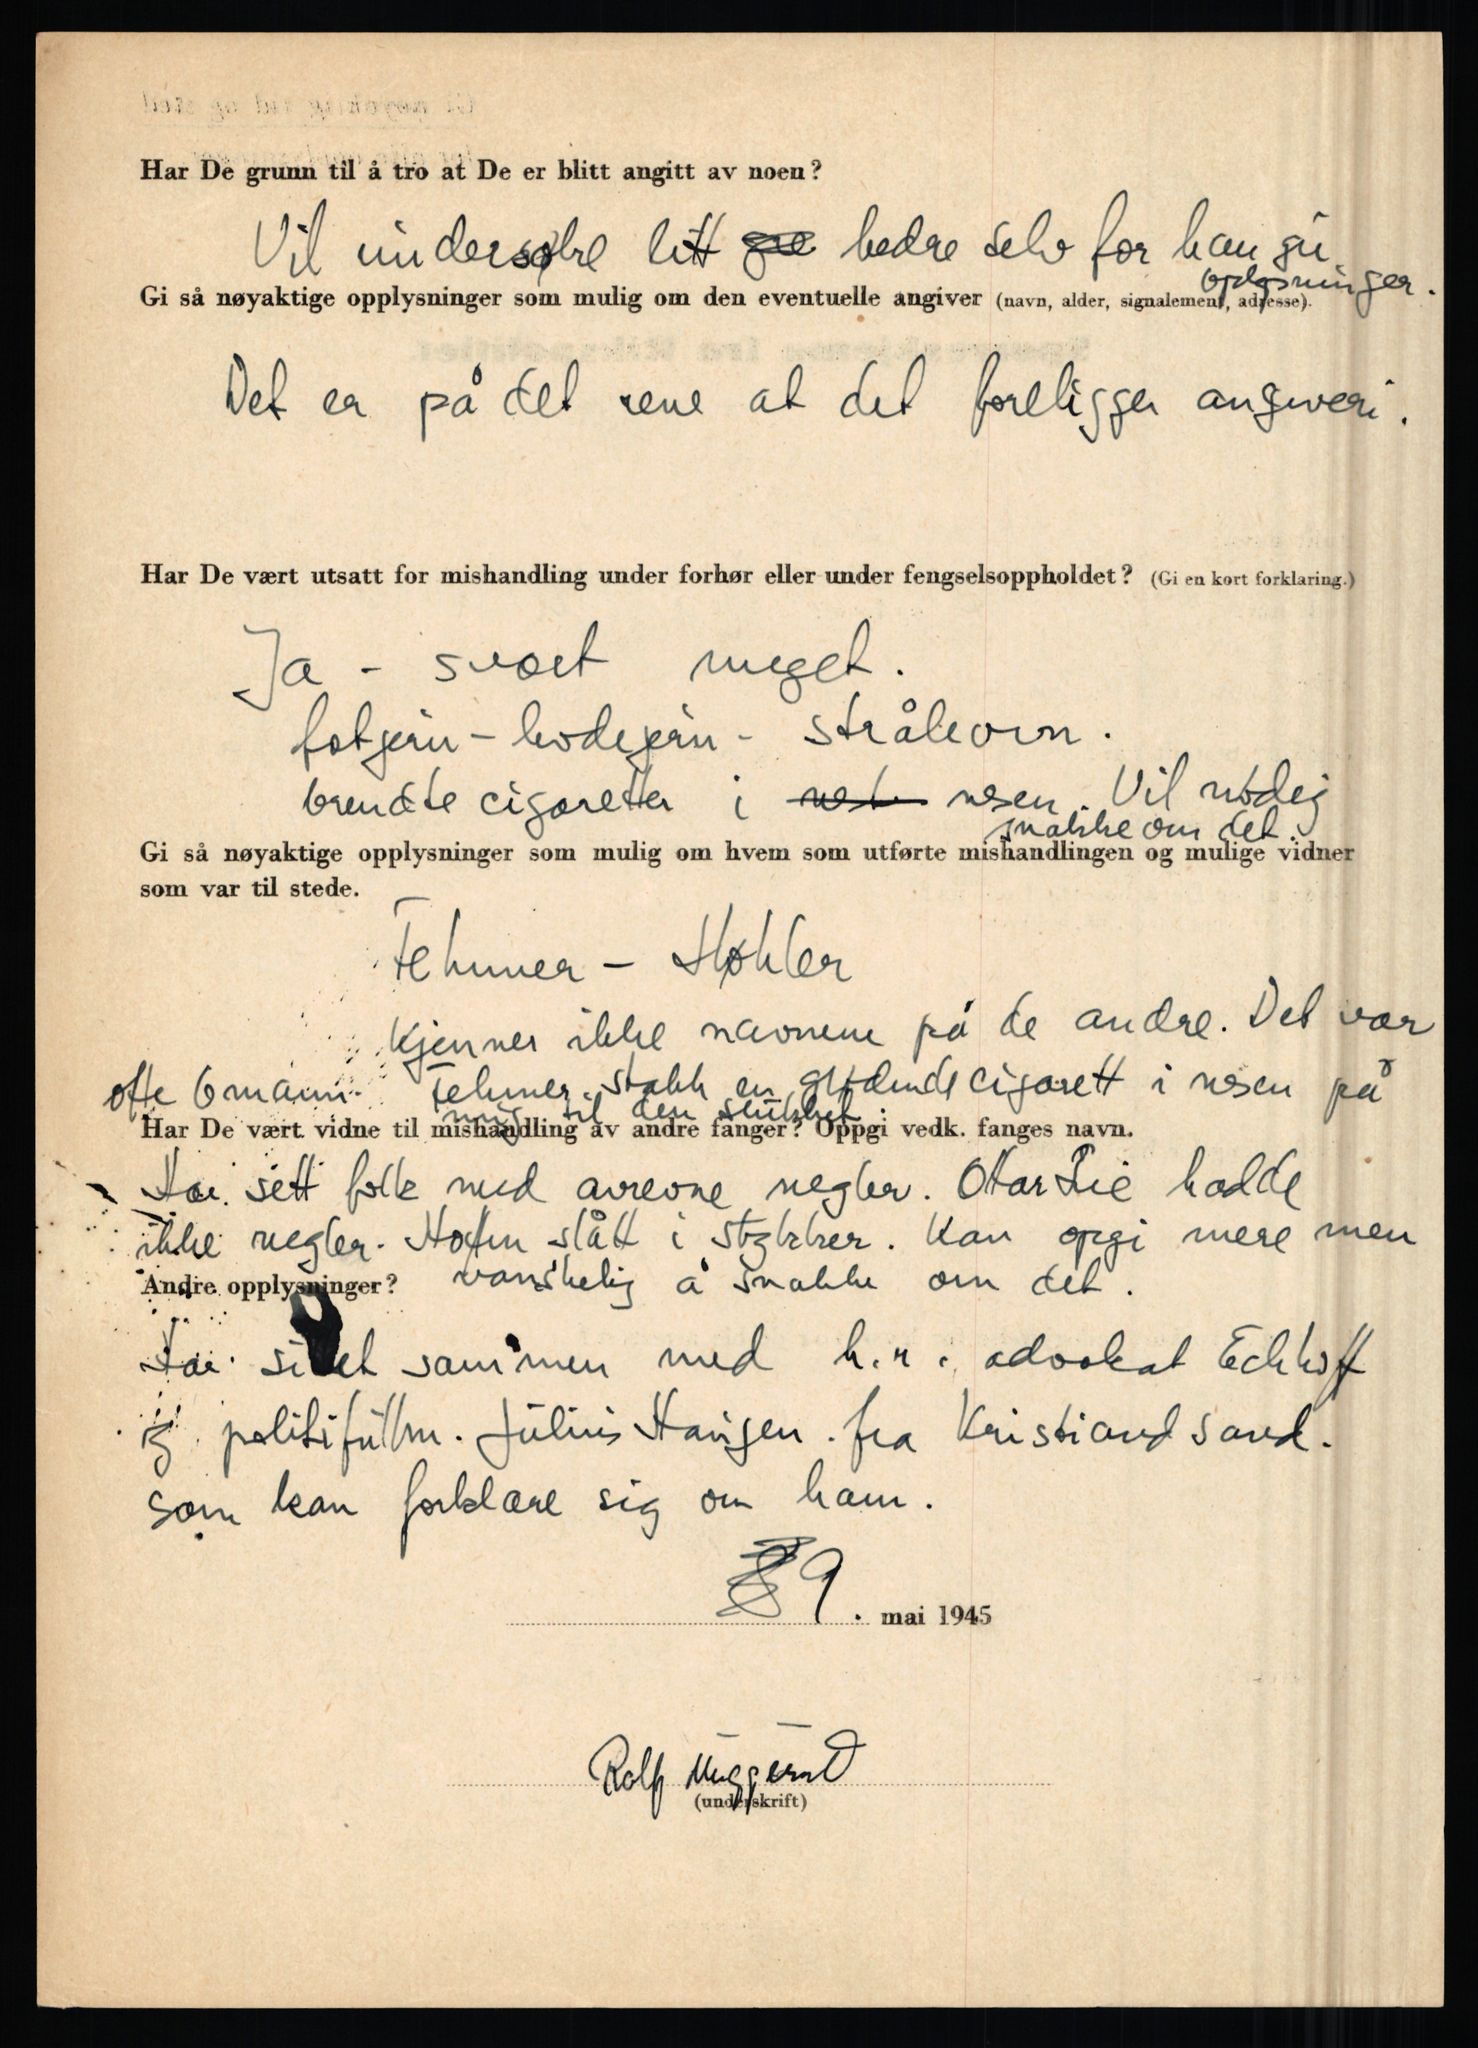 Har De grunn til å tro at De er blitt angitt av noen?
Vil undersøke litt bedre selv før han gir
opplysninger.
Gi så nøyaktige opplysninger som mulig om den eventuelle angiver (navn, alder, signalement, adresse).
Det er på det rene at det foreligger angiveri.
Har De vært utsatt for mishandling under forhør eller under fengselsoppholdet? (Gi en kort forklaring.)
Ja - svært meget.
fotjern - hodejern - stråleovn.
brendte cigaretter i nesen. Vil nødig
snakke om det.
Gi så nøyaktige opplysninger som mulig om hvem som utførte mishandlingen og mulige vidner
som var til stede.
Fehmer -
Kjenner ikke navnene på de andre. Det var
ofte 6 mann. Fehmer stakk en glødende cigarett i nesen på
mig til den sluknet.
Har De vært vidne til mishandling av andre fanger? Oppgi vedk. fanges navn.
Har sett folk med avrevne negler. Ottar Lie hadde
ikke negler. Hoften slått i stykker. Kan opgi mere men
vanskelig å snakke om det.
Andre opplysninger?
Har sittet sammen med h.r. advokat Eckhoff
og politifullm. Julius Hansen. fra Kristiansand.
som kan forklare sig om ham.
9. mai 1945
Rolf
(underskrift)